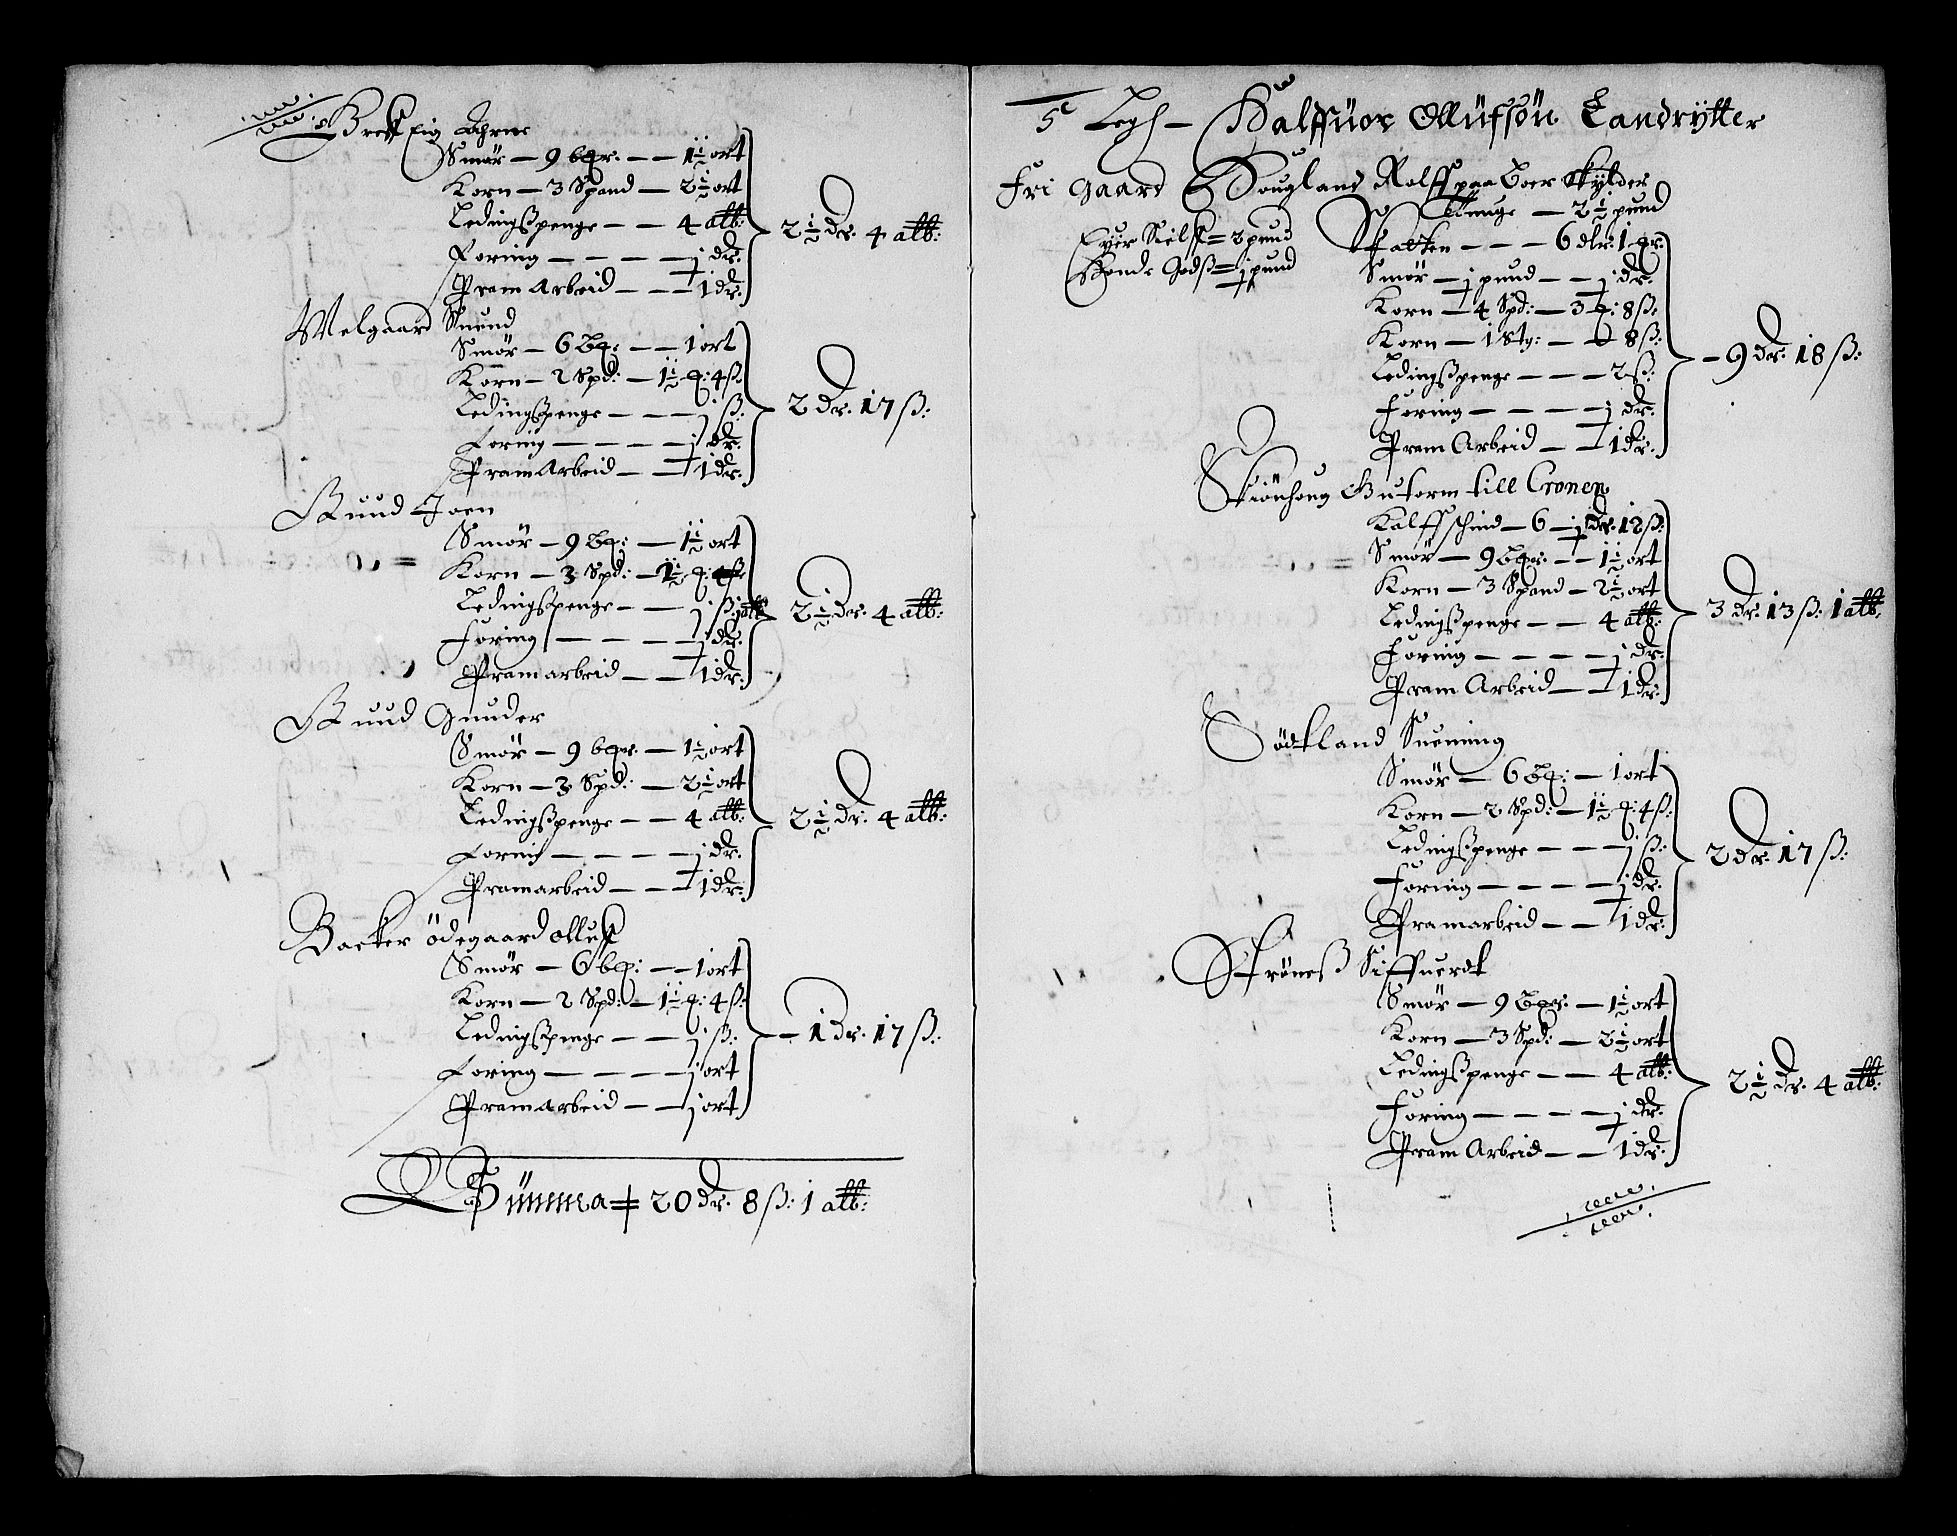 Breche Eig Ahrne
Smör — 9 bpr. — — 1½ ort
Korn — 3 Spand — 2½ ort
Ledingsspenge — — 4 alb:
Foring — — — — j dr.
Pram Arbeid — — — 1 dr.
2½ dr. 4 alb:
Melgaard Snund
Smör — 6 bp: — — 1 ort
Korn — 2 Spd: — 1½ q: 4 ß
Ledingsspenge — — — j ß:
Foring — — — — j dr.
Pram Arbeid — — 1 dr.
2 dr. 17 ß:
Ruud Joen
Smör — 9 bp: — 1½ ort
Korn — 3 Spd: — 1½ q:
Ledingsspenge — — j ß: j alb
Foring — — — — j dr.
Pramarbeid — — 1 dr.
2½ dr. 4 alb:
Ruud Gunder
Smör — 9 bpr. — 1½ ort
Korn — 3 Spd: — 2½ ort
Ledingsspenge — — 4 alb:
Foring — — — — j dr.
Pramarbeid — — 1 dr.
2½ dr. 4 alb:
Backer ödegaard olluf
Smör — 6 bp: — — 1 ort
Korn — 2 Spd: — 1½ q: 4 ß:
Ledingsspenge — — j ß:
Foring — — — — j ort
Pramarbeid — — j ort
— 1 dr. 17 ß:
Summa 20 dr. 8 ß: 1 alb:
5 Legh — Halffuor Ollüfsön Landrÿtter
Fri gaard Hougland Rolff paa Boer skÿlder
Tunge — 2½ pund
Eyer Sielff = 2 pund
Bonde Godß = j pund
Skatten — — — 6 dlr: 1 qr:
Smör — j pund — — j dr.
Korn — 4 Spd: — 3 q: 8 ß:
Korn — 1 Stg: — 8 ß:
Ledingsspenge — — — 2 ß:
Foring — — — — j dr.
Pram Arbeid — — 1 dr.
— 9 dr. 18 ß:
Skiönhoug Gutorm till Cronen
Kalffschind — 6 — j dr. 12 ß:
Smör — 9 bpr. — — 1½ ort
Korn — 3 Spand — 2½ ort
Ledingsspenge — — 4 alb:
Foring — — — — j dr.
Pram Arbeid — — 1 dr.
3 dr. 13 ß: 1 alb:
Södtland Suening
Smör — 6 bp: — 1 ort
Korn — 2 Spd: — 1½ q: 4 ß:
Ledingsspenge — — — j ß:
Foring — — — — j dr.
Pramarbeid — — 1 dr.
2 dr. 17 ß:
Ströneß Siffuerdt
Smör — 9 bpr. — 1½ ort
Korn — 3 Spd: — 2½ ort
Ledingsspenge — — 4 alb:
Foring — — — — j dr.
Pram Arbeid — — 1 dr:
2½ dr. 4 alb: